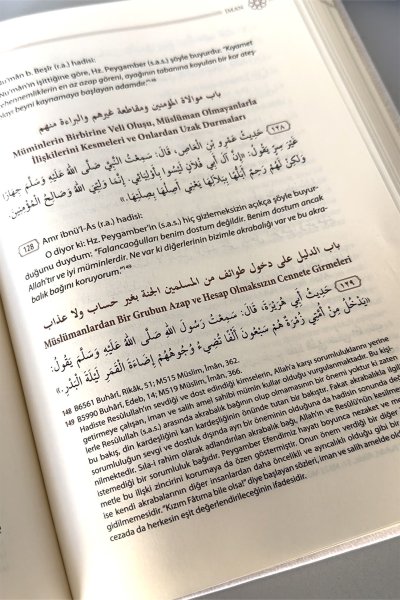 İMAN
Nu'mân b. Beşîr (r.a.) hadisi:
Nu'mân'ın işittiğine göre, Hz. Peygamber (s.a.s.) şöyle buyurdu: "Kıyamet
cehennemliklerin en az azap göreni, ayağının tabanına koyulan bir kor ateş-
beyni kaynamaya başlayan adamdır."
باب موالاة المؤمنين ومقاطعة غيرهم والبراءة منهم
Müminlerin Birbirine Veli Oluşu, Müslüman Olmayanlarla
İlişkilerini Kesmeleri ve Onlardan Uzak Durmaları
١٢٨ حَدِيثُ عَمْرِو بْنِ الْعَاصِ، قَالَ: سَمِعْتُ النَّبِيَّ صَلَّى اللهُ عَلَيْهِ وَسَلَّمَ جِهَارًا
غَيْرَ سِرٍّ يَقُولُ: «إِنَّ آلَ أَبِي فُلَانٍ لَيْسُوا بِأَوْلِيَائِي. إِنَّمَا وَلِيِّيَ اللهُ وَصَالِحُ الْمُؤْمِنِينَ.
وَلَكِنْ لَهُمْ رَحِمٌ أَبُلُّهَا بِبِلَالِهَا يَعْنِي أَصِلُهَا بِصِلَتِهَا.»
128 Amr ibnü'l-Âs (r.a.) hadisi:
O diyor ki: Hz. Peygamber'in (s.a.s.) hiç gizlemeksizin açıkça şöyle buyur-
duğunu duydum: "Falancaoğulları benim dostum değildir. Benim dostum ancak
Allah'tır ve iyi müminlerdir. Ne var ki diğerlerinin bizimle akrabalığı var ve bu akra-
balık bağını koruyorum."¹⁴⁹
باب الدليل على دخول طوائف من المسلمين الجنة بغير حساب ولا عذاب
Müslümanlardan Bir Grubun Azap ve Hesap Olmaksızın Cennete Girmeleri
١٢٩ حَدِيثُ أَبِي هُرَيْرَةَ، قَالَ: سَمِعْتُ رَسُولَ اللهِ صَلَّى اللهُ عَلَيْهِ وَسَلَّمَ يَقُولُ:
«يَدْخُلُ مِنْ أُمَّتِي زُمْرَةٌ هُمْ سَبْعُونَ أَلْفًا تُضِيءُ وُجُوهُهُمْ إِضَاءَةَ الْقَمَرِ لَيْلَةَ الْبَدْرِ.»
148 B6561 Buhârî, Rikâk, 51; M515 Müslim, Îmân, 362.
149 B5990 Buhârî, Edeb, 14; M519 Müslim, Îmân, 366.
Hadiste Resûlullah'ın sevdiği ve dost edindiği kimselerin, Allah'a karşı sorumluluklarını yerine
getirmeye çalışan, iman ve salih amel sahibi mümin kullar olduğu vurgulanmaktadır. Bu kişi-
lerle Resûlullah (s.a.s.) arasında akrabalık bağının olup olmamasının bir önemi yoktur ki zaten
bu bakış, din kardeşliğini kan kardeşliğinin önünde tutan bir bakıştır. Fakat akrabalıkla ilgili
sorumluluğun sevgi ve dostluk dışında ayrı bir öneminin olduğuna da hadisin sonunda değ-
nilmektedir. Sıla-i rahim olarak adlandırılan akrabalık bağı, Allah'ın ve Resûlü'nün kesilmesini
istemediği bir sorumluluk bağıdır. Peygamber Efendimiz, hayatı boyunca nezaket ve mer-
metle bu ilişki zincirini korumaya da özen göstermiştir. Onun önem verdiği bir diğer
ise kendi akrabalarının diğer insanlardan daha öncelikli ve ayrıcalıklı olduğu gibi bir
gidilmemesidir. "Kızım Fâtıma bile olsa!" diye başlayan sözleri, iman ve salih amelde olduğu
cezada da herkesin eşit değerlendirileceğinin ifadesidir.